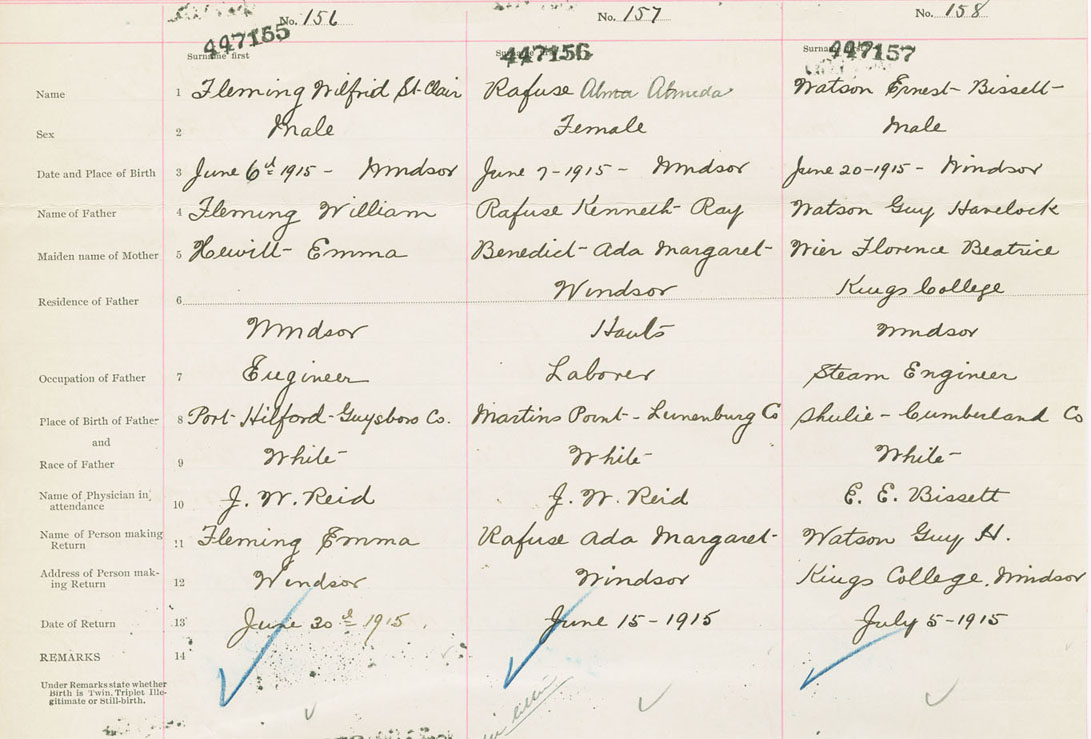 No. 156 No. 157 No. 158
447155 447156 447157
Surname first
Name 1 Fleming Wilfrid St. Clair Rafuse Alma Almeda Watson Ernest Bissett
Sex 2 Male Female Male
Date and Place of Birth 3 June 6th 1915 - Windsor June 7-1915 - Windsor June 20-1915 - Windsor
Name of Father 4 Fleming William Rafuse Kenneth Ray Watson Guy Havelock
Maiden name of Mother 5 Hewitt Emma Benedict Ada Margaret Wier Florence Beatrice
Windsor Kings College
Residence of Father 6
Windsor Hants Windsor
Occupation of Father 7 Engineer Laborer Steam Engineer
Place of Birth of Father 8 Port Hilford - Guysboro Co. Martins Point - Lunenburg Co Shulie - Cumberland Co
and
Race of Father 9 White White White
Name of Physician in attendance 10 J. W. Reid J. W. Reid E. E. Bissett
Name of Person making Return 11 Fleming Emma Rafuse Ada Margaret Watson Guy H.
Address of Person making Return 12 Windsor Windsor Kings College, Windsor
Date of Return 13 June 30th 1915. June 15-1915 July 5-1915
REMARKS 14
Under Remarks state whether
Birth is Twin, Triplet Ille-
gitimate or Still-birth.